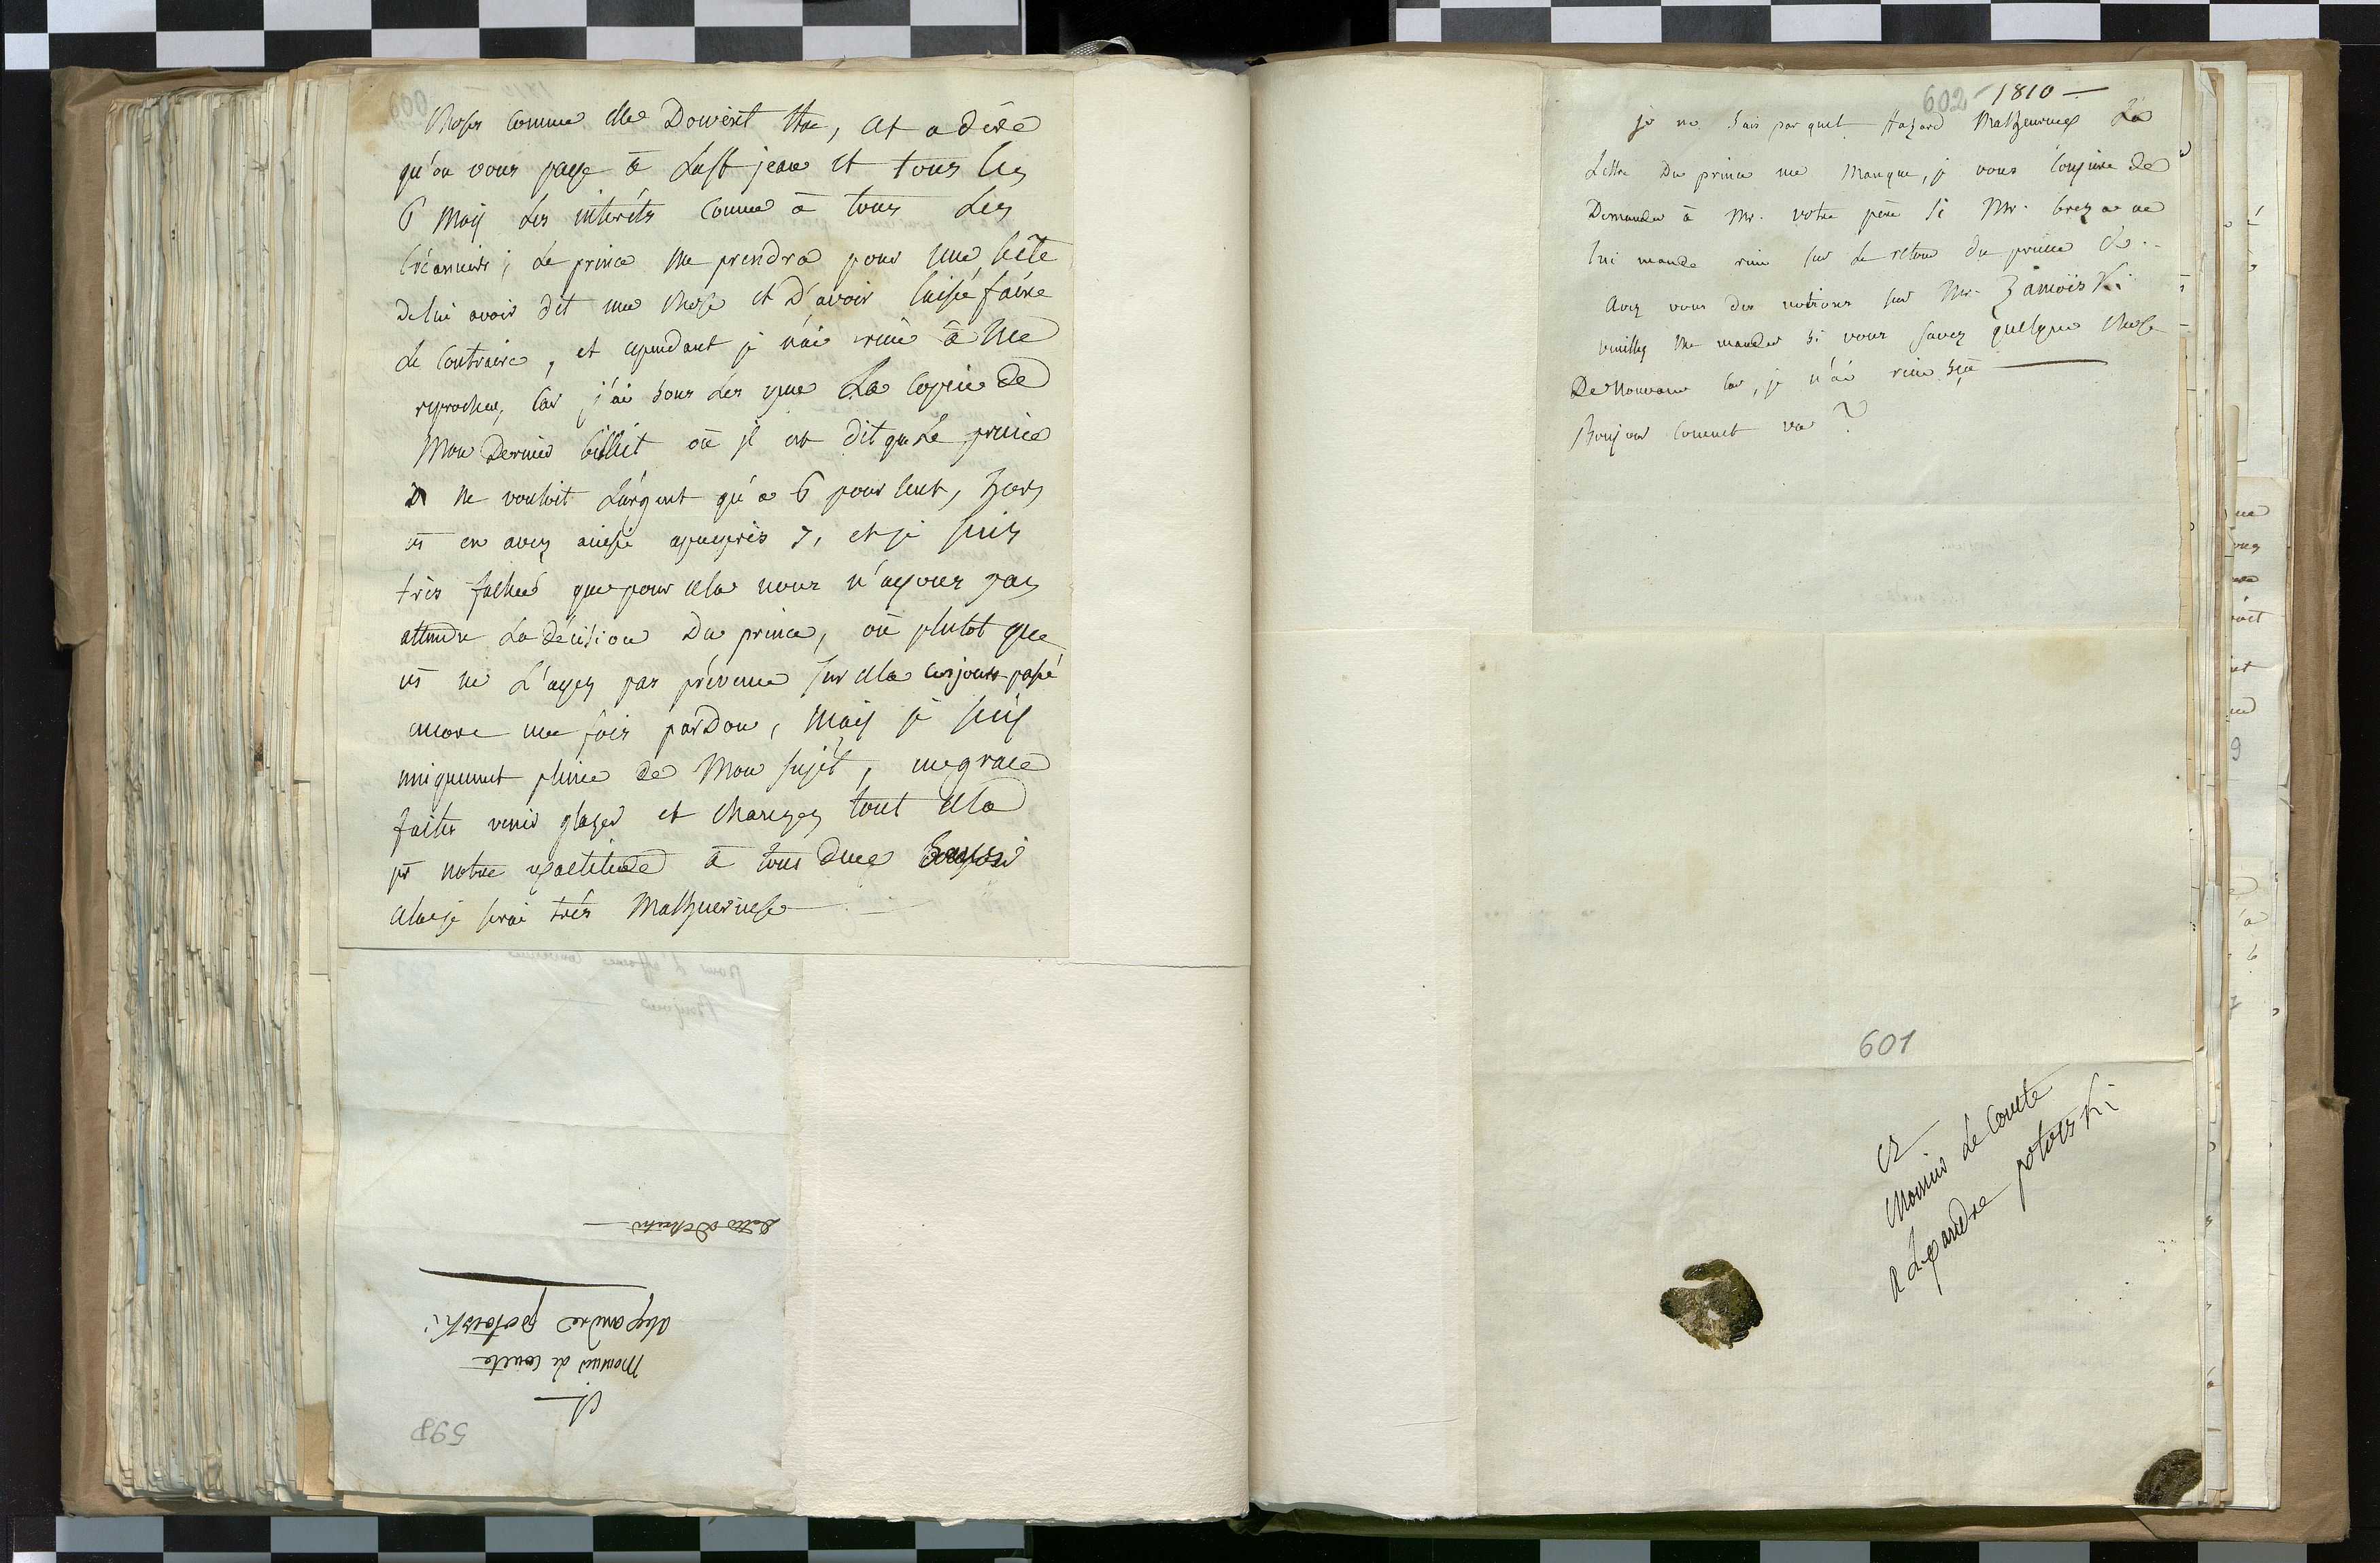 choses comme elles Doivent etre, et a dire
qu'on vous paye à La St jean et tous les
6 Mois Les interéts comme à tous Les
Créanciers; Le prince me prendra pour une bête
de lui avoir dit une chose et D'avoir laissé faire
Le Contraire, et cependant je n'ai rien à me
reprocher, car j'ai sous Les yeux La Copie de
Mon Dernier billet où il est dit que Le prince
ne vouloit L'argent qu'a 6 pour Cent,
vs en avez apeuprès 7, et je suis
très faché que pour cela nous n'ayons pas
attendu La décision Du prince, ou plutot que
vs ne L'ayez pas prévenu sur cela ces jours passé
encore une fois pardon, Mais je suis
uniquement pleine de Mon sujet, de grace
faites venir glazer et changez tout cela
pr notre exactitude à tous deux
cela je serai très Malheureuse
Pour L'affaire
Bonjour
599
A
Monsieur Le Comte
Alexandre potocki
602 - 1810 —
je ne sais par quel hazard Malheureux La
Lettre Du prince me Manque, je vous Conjure de
Demander à Mr. votre père si Mr. breza ne
lui mande rien sur Le retour du prince &..
Avez vous des notions sur Mr. Zamoiski
veuillez me mander si vous savez quelque chose
De Nouveau car, je n'ai rien sçu
Bonjour Comment va ?
601
A
Monsieur Le Comte
ALexandre potocki